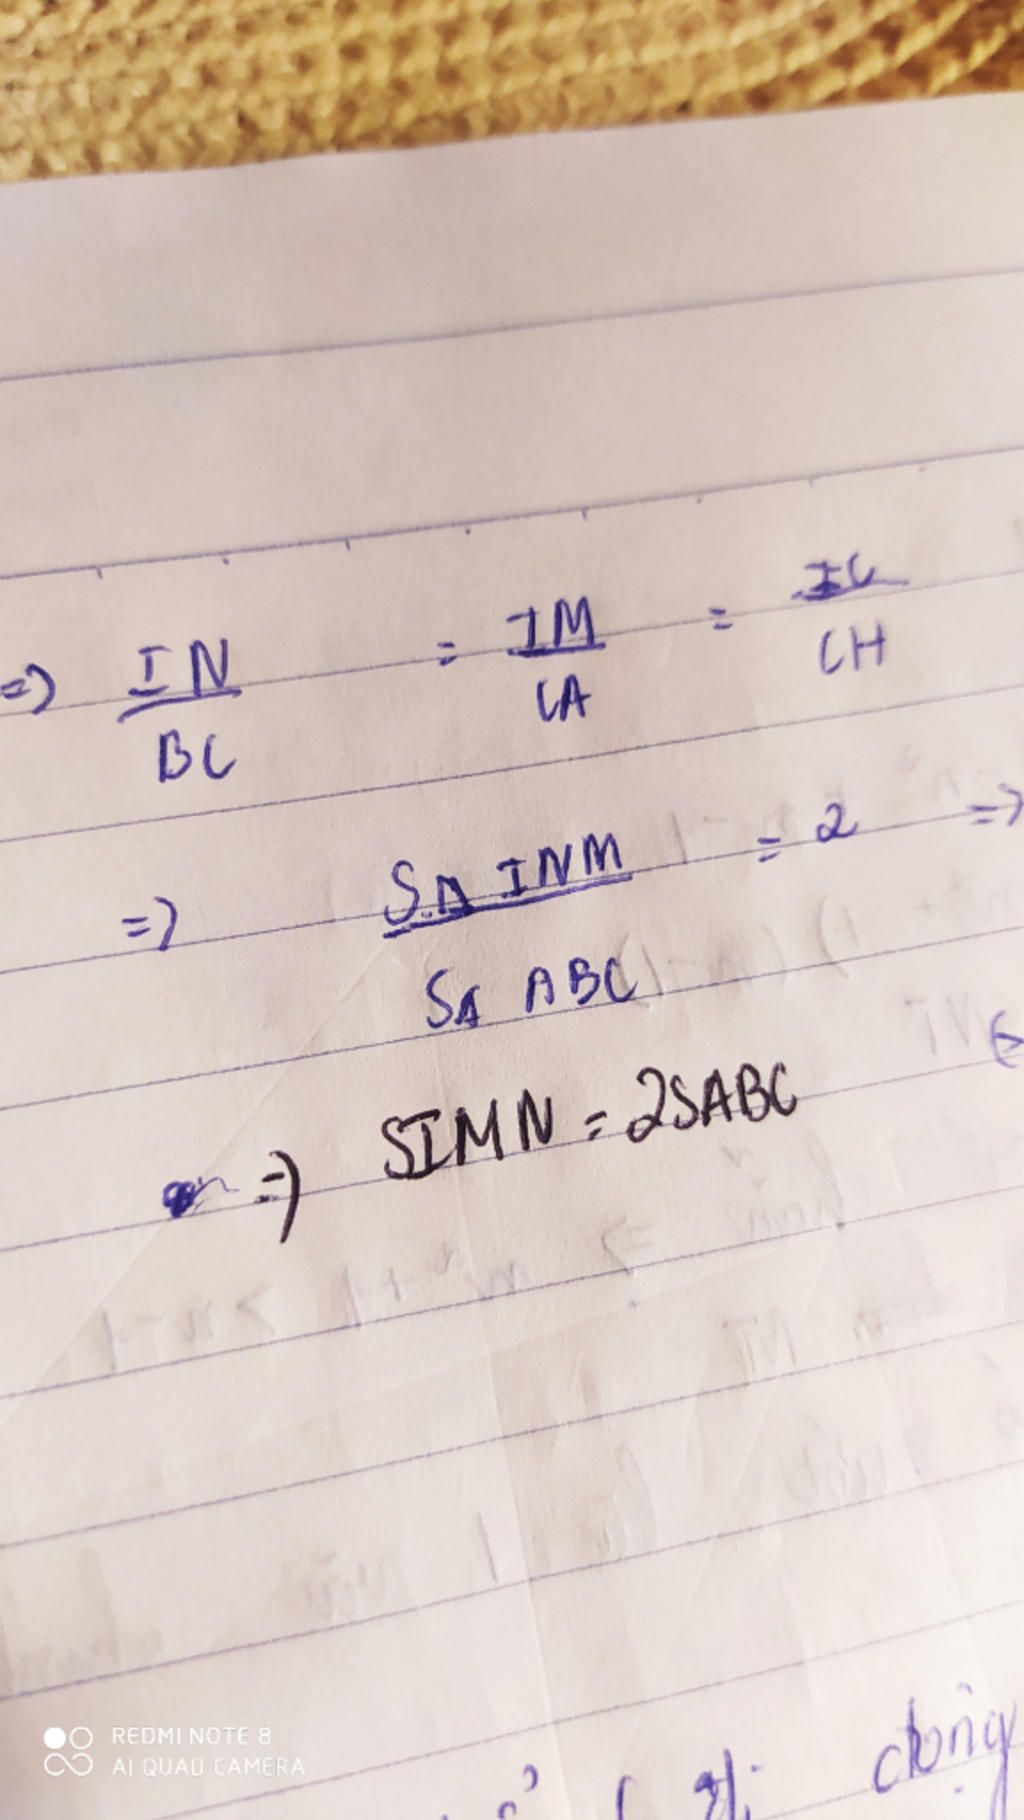 => IN/BC = IM/CA = IC/CH
=> SΔ INM / SΔ ABC = 2 =>
=> SIMN = 2SABC
dong
REDMI NOTE 8
AI QUAD CAMERA